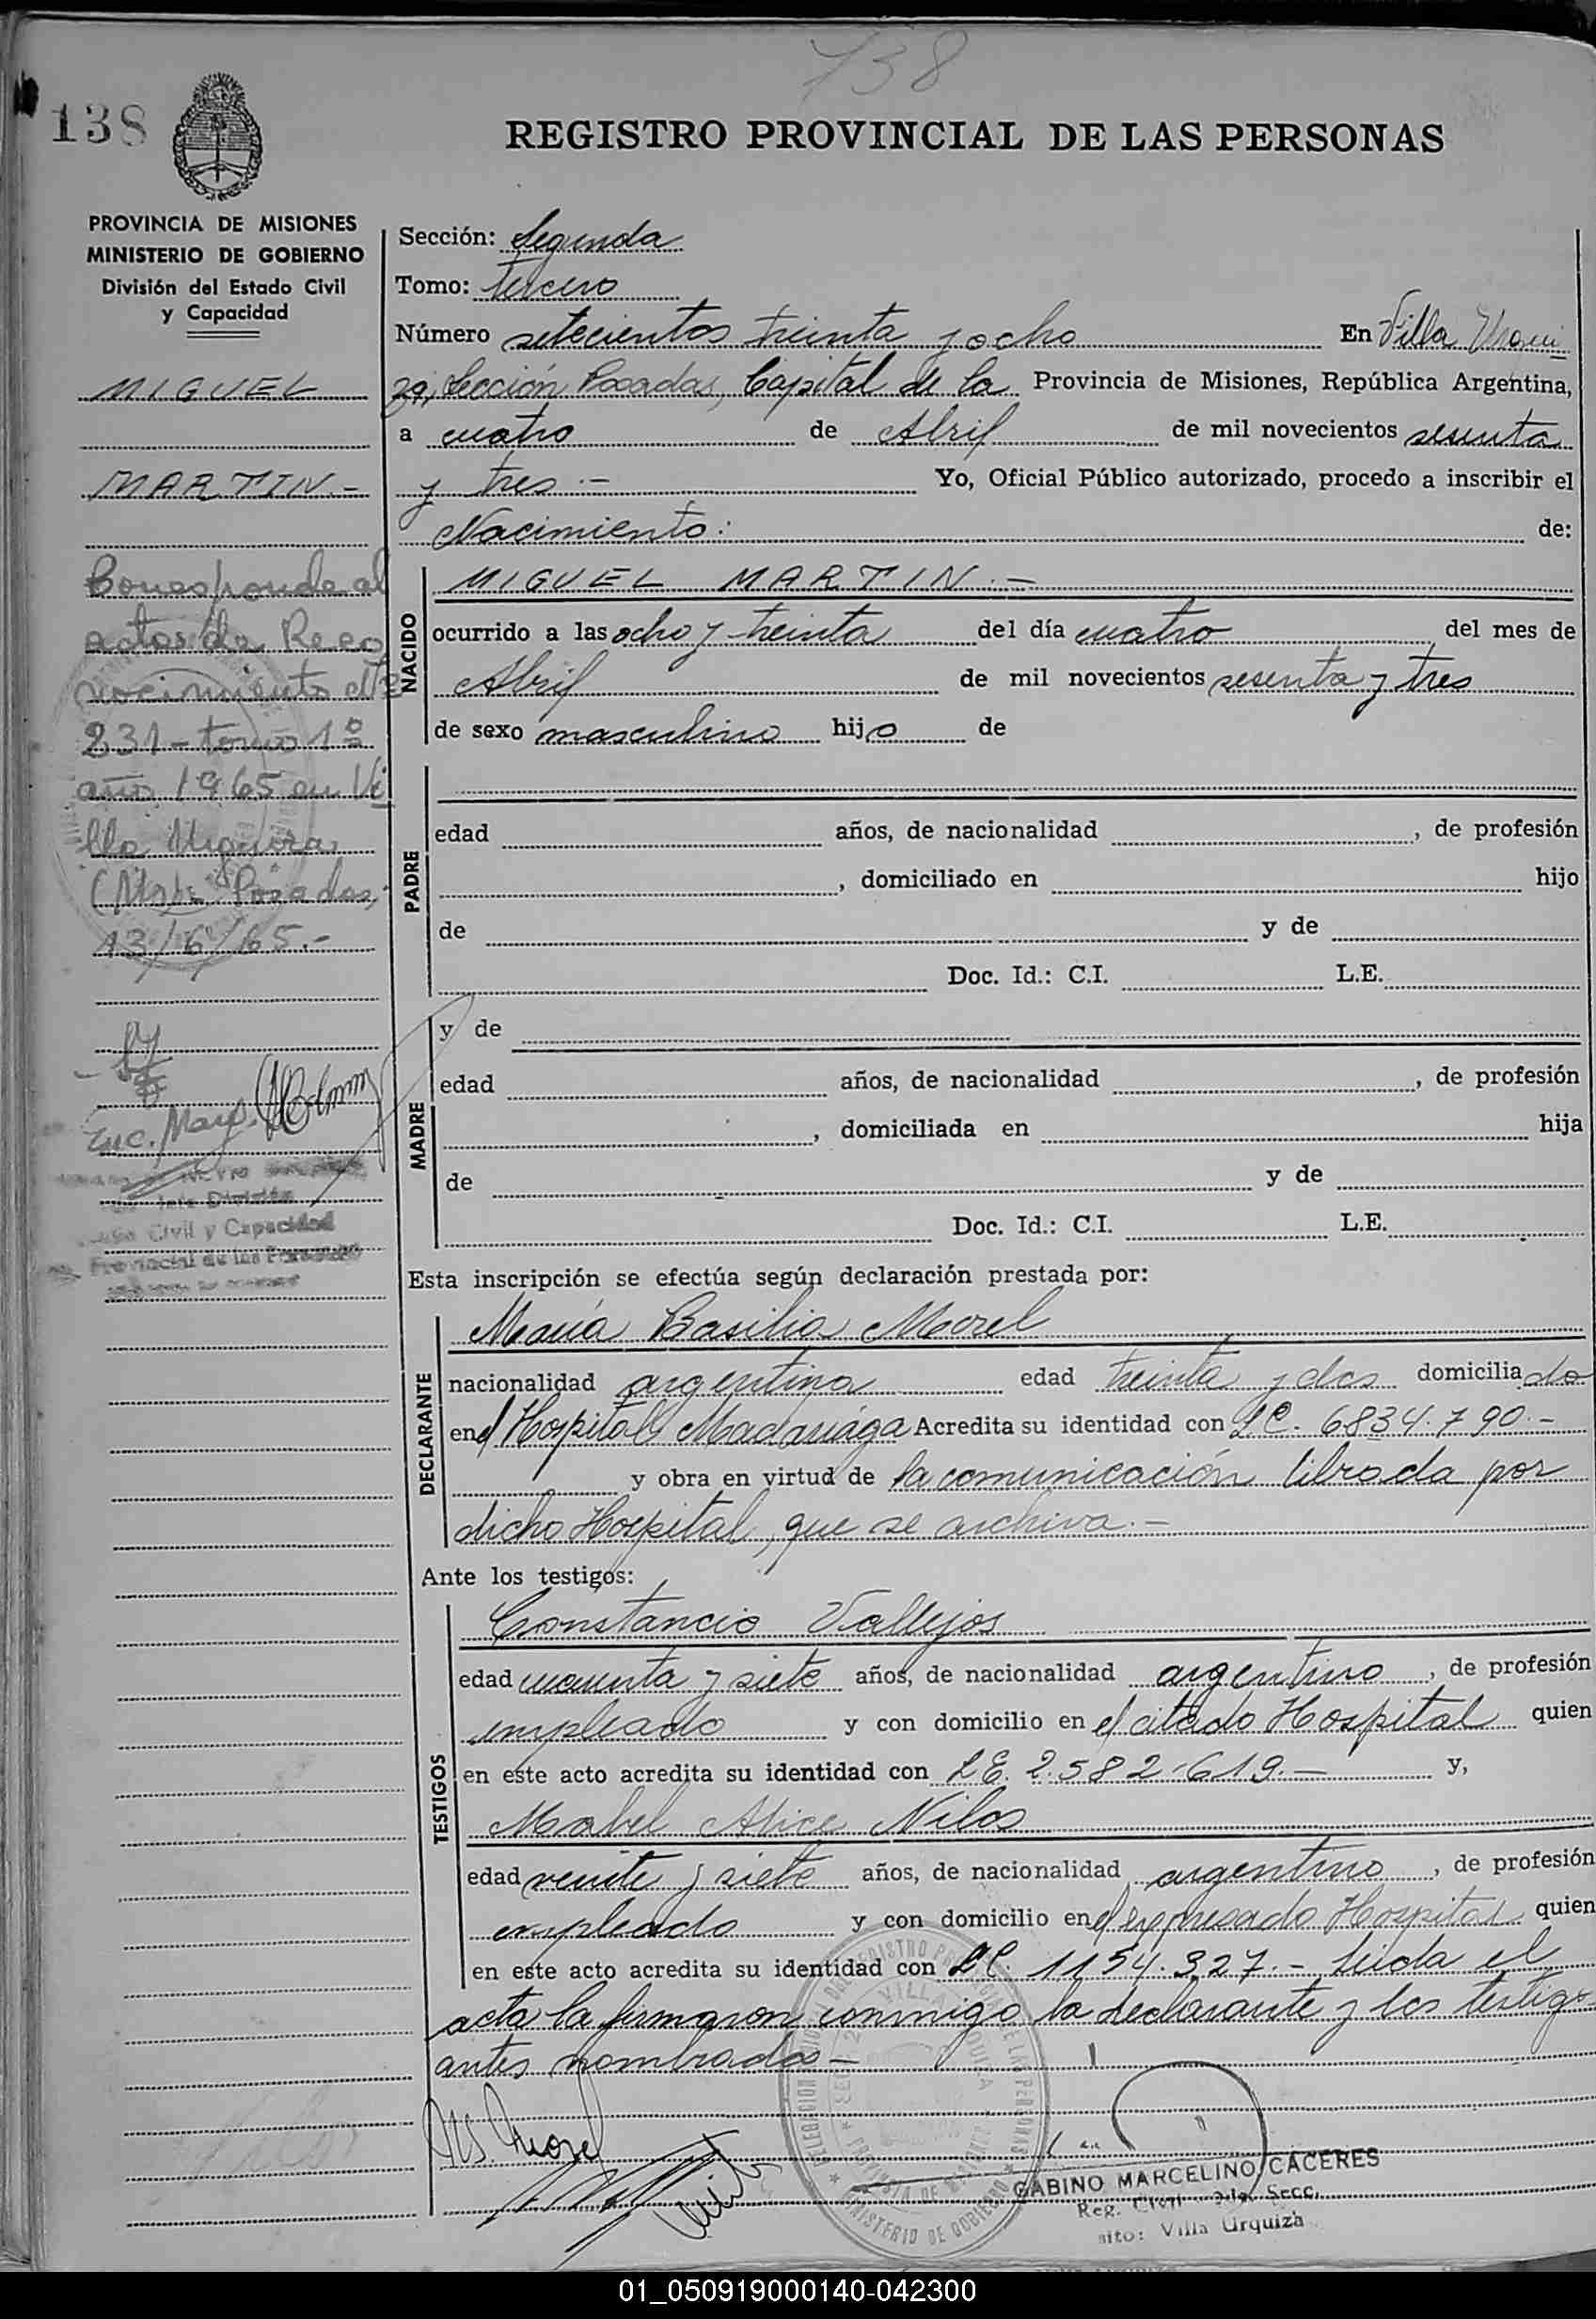 738
138
REGISTRO PROVINCIAL DE LAS PERSONAS
PROVINCIA DE MISIONES
MINISTERIO DE GOBIERNO
División del Estado Civil
y Capacidad
MIGUEL
MARTIN.-
Corresponde al
actas de Reco
nocimiento Nº
231 - tomo 1º
año 1965 en Vi
lla Urquiza
Posadas,
13/6/65.-
Enc. Mayo
Civil y Capacidad
Provincial de las Personas
Sección: Segunda
Tomo: tercero
Número setecientos treinta y ocho En Villa Urqui
za, Sección Posadas, Capital de la Provincia de Misiones, República Argentina,
a cuatro de Abril de mil novecientos sesenta
y tres.- Yo, Oficial Público autorizado, procedo a inscribir el
Nacimiento: de:
NACIDO
MIGUEL MARTIN.-
ocurrido a las ocho y treinta del día cuatro del mes de
Abril de mil novecientos sesenta y tres
de sexo masculino hijo de
PADRE
edad años, de nacionalidad , de profesión
, domiciliado en hijo
de y de
Doc. Id.: C.I. L.E.
MADRE
y de
edad años, de nacionalidad , de profesión
, domiciliada en hija
de y de
Doc. Id.: C.I. L.E.
Esta inscripción se efectúa según declaración prestada por:
DECLARANTE
María Basilia Morel
nacionalidad argentina edad treinta y dos domiciliada
en el Hospital Madariaga Acredita su identidad con LC. 6834.790.-
y obra en virtud de la comunicación librada por
dicho Hospital, que se archiva.-
Ante los testigos:
TESTIGOS
Constancio Vallejos
edad cuarenta y siete años, de nacionalidad argentino, de profesión
empleado y con domicilio en el citado Hospital quien
en este acto acredita su identidad con LE. 2.582.619.- y,
Mabel Alice Nilos
edad veinte y siete años, de nacionalidad argentino, de profesión
empleado y con domicilio en el expresado Hospital quien
en este acto acredita su identidad con LC. 1154.327.- Leida el
acta la firmaron conmigo la declarante y los testigos
antes nombrados-
M.B. Morel
GABINO MARCELINO CÁCERES
Reg. Civil 2da. Secc.
sito: Villa Urquiza
01_050919000140-042300